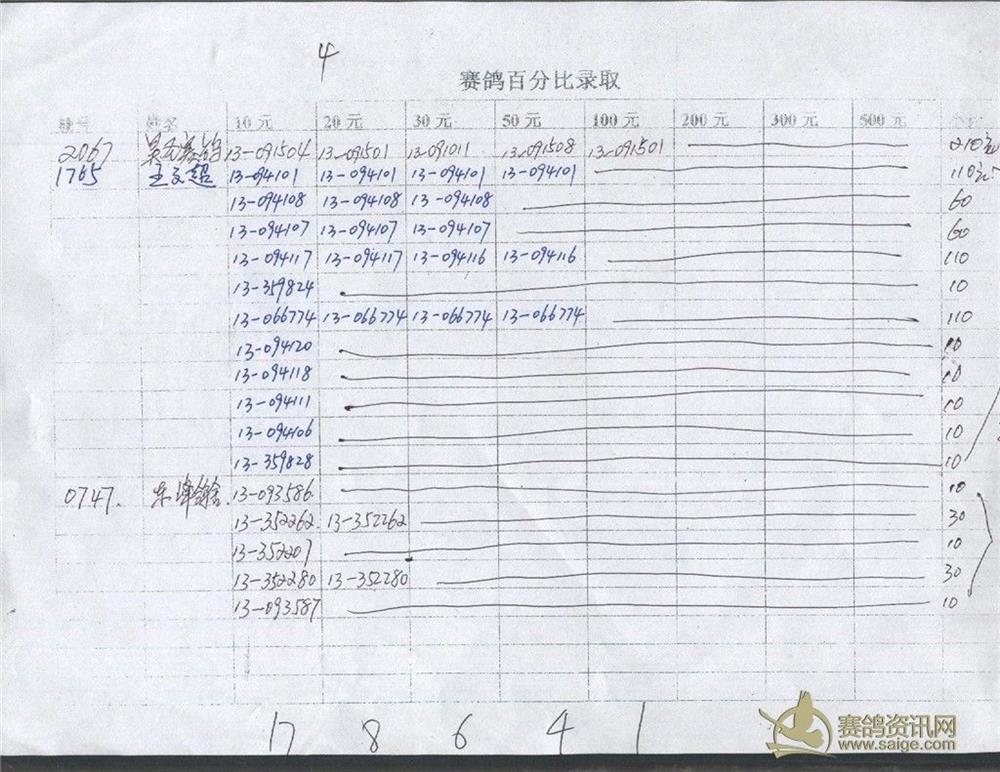 4
赛鸽百分比录取
棚号 姓名 10元 20元 30元 50元 100元 200元 300元 500元 小计
2067 13-091504 13-091501 13-091011 13-091508 13-091501 210元
1765 王文超 13-094101 13-094101 13-094101 13-094101 110元
13-094108 13-094108 13-094108 60
13-094107 13-094107 13-094107 60
13-094117 13-094117 13-094116 13-094116 110
13-359824 10
13-066774 13-066774 13-066774 13-066774 110
13-094120 10
13-094118 10
13-094111 10
13-094106 10
13-359828 10
0747. 13-093586 10
13-352262 13-352262 30
13-352207 10
13-352280 13-352280 30
13-093587 10
17 8 6 4 1
赛鸽资讯网
www.saige.com